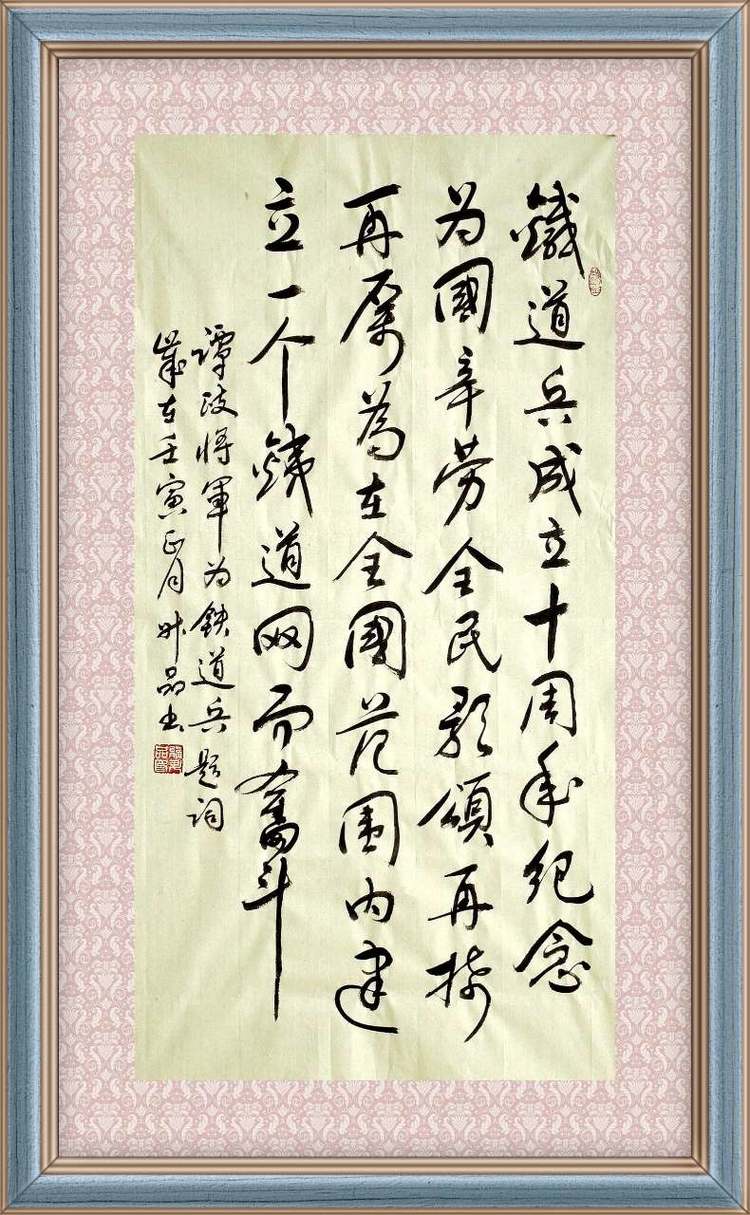 鐵道兵成立十周年纪念
为國辛劳全民歌頌再接
再厲為在全國范围内建
立一个鉄道网而奮斗
谭政将軍为鉄道兵题词
歲在壬寅正月品书